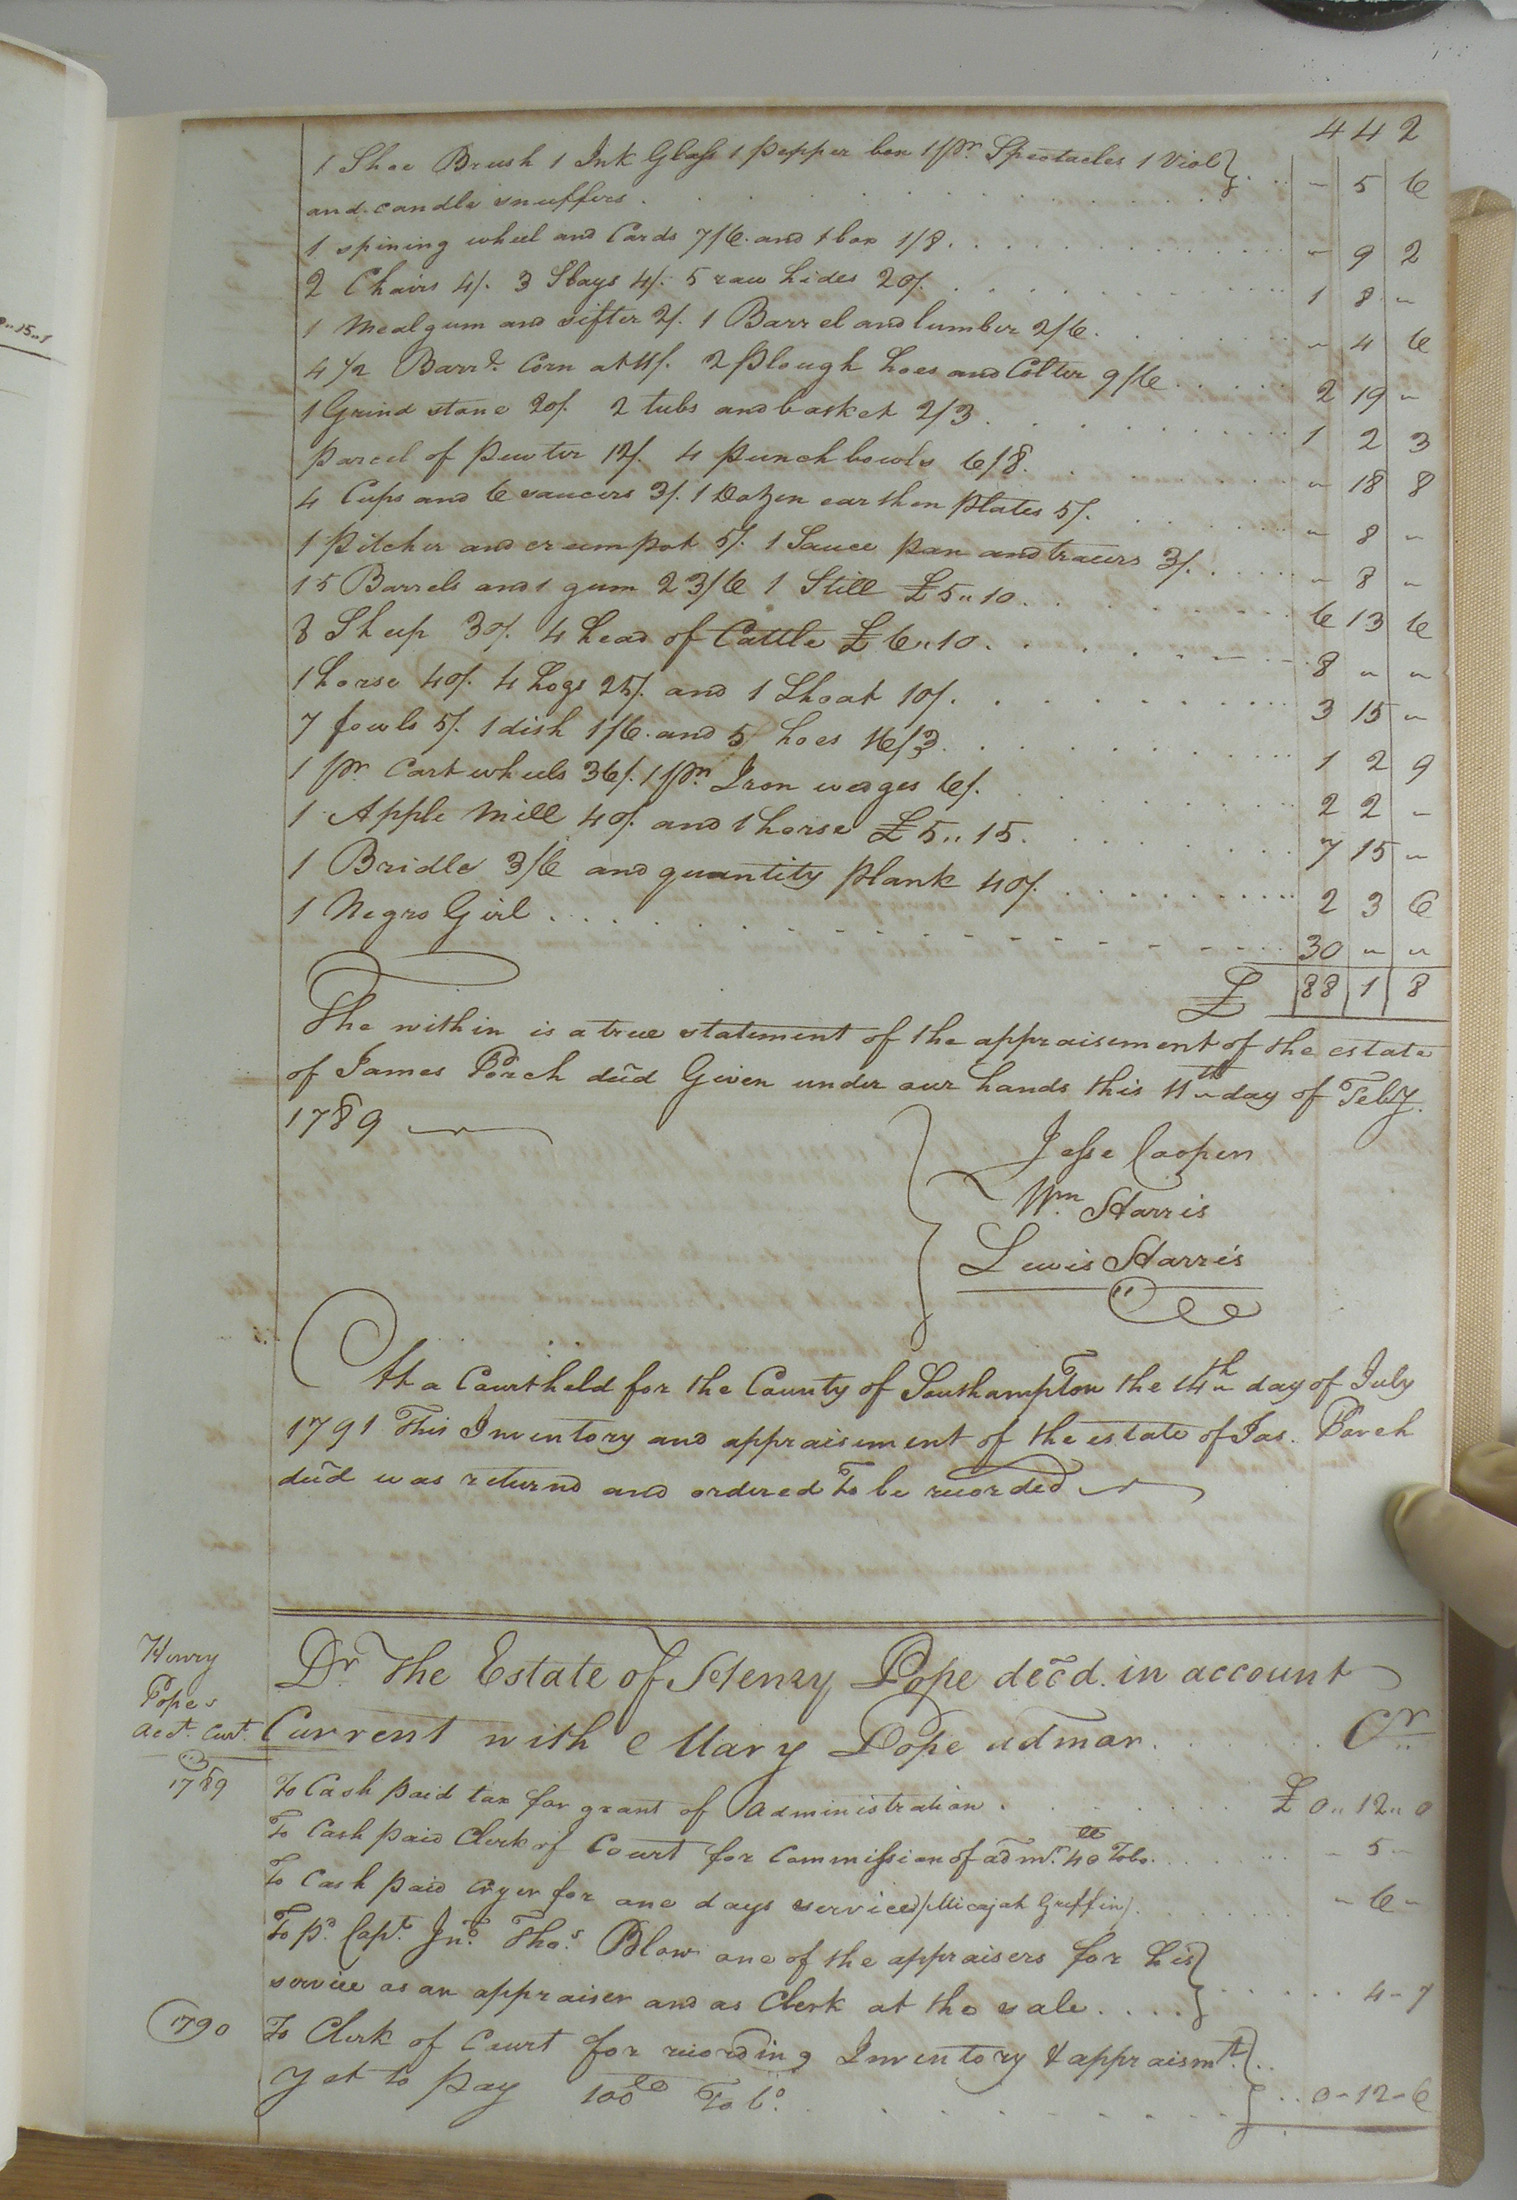 442
1 Shoe Brush 1 Ink Glass 1 pepper box 1 pr. Spectacles 1 Viol
and candle snuffers . . . - 5 6
1 spining wheel and Cards 7/6. and 1 box 1/8 . . . - 9 2
2 Chairs 4/. 3 Slays 4/. 5 raw hides 20/. . . . 1 8 -
1 Meal gum and sifter 2/. 1 Barrel and lumber 2/6. . . . - 4 6
4 1/2 Barrs. Corn at 11/. 2 plough hoes and Colter 9/6 . . . 2 19 -
1 Grind stone 20/. 2 tubs and basket 2/3 . . . 1 2 3
parcel of pewter 12/. 4 punch bowls 6/8. . . . - 18 8
4 Cups and 6 saucers 3/. 1 Dozen earthen plates 5/. . . . - 8 -
1 pitcher and creempot 5/. 1 Sauce pan and traers 3/. . . . - 8 -
15 Barrels and 1 gum 23/6 1 Still £5,,10. . . . 6 13 6
8 Sheep 30/. 4 head of Cattle £6,,10. . . . 8 - -
1 horse 40/. 4 hogs 25/. and 1 Shoat 10/. . . . 3 15 -
7 fowls 5/. 1 dish 1/6. and 5 hoes 16/3. . . . 1 2 9
1 pr. Cart wheels 36/. 1 pr. Iron wedges 6/. . . . 2 2 -
1 Apple Mill 40/. and 1 horse £5,,15. . . . 7 15 -
1 Bridle 3/6 and quantity plank 40/. . . . 2 3 6
1 Negro Girl . . . 30 - -
£ 88 1 8
The within is a true statement of the appraisement of the estate
of James Porch decd Given under our hands this 11th day of Feby.
1789
Jesse Cooper
Wm. Harris
Lewis Harris
At a Court held for the County of Southampton the 14th day of July
1791 This Inventory and appraisement of the estate of Jas. Porch
decd was returnd and ordered To be recorded
Henry
Popes
Acct. Curt.
Dr. The Estate of Henry Pope decd. in account
Current with Mary Pope admor. . . . Cr.
1789 To Cash paid tax for grant of Administration . . . £ 0,,12,,0
To Cash paid Clerk of Court for Commission of admr. 40 Tobo. . . . - 5 -
To Cash paid Cryer for one days service /Micajah Griffin/. . . . - 6 -
To pd. Capt. Jno. Thos. Blow one of the appraisers for his
service as an appraiser and as Clerk at the sale . . . 4 - 7
1790 To Clerk of Court for recording Inventory & appraismt.
yet to pay 100 Tobo. . . . 0 - 12 - 6